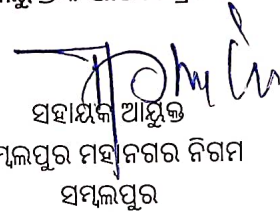 ସହାୟକ ଆୟୁକ୍ତ
ମ୍ବଲପୁର ମହାନଗର ନିଗମ
ସମ୍ବଲପୁର